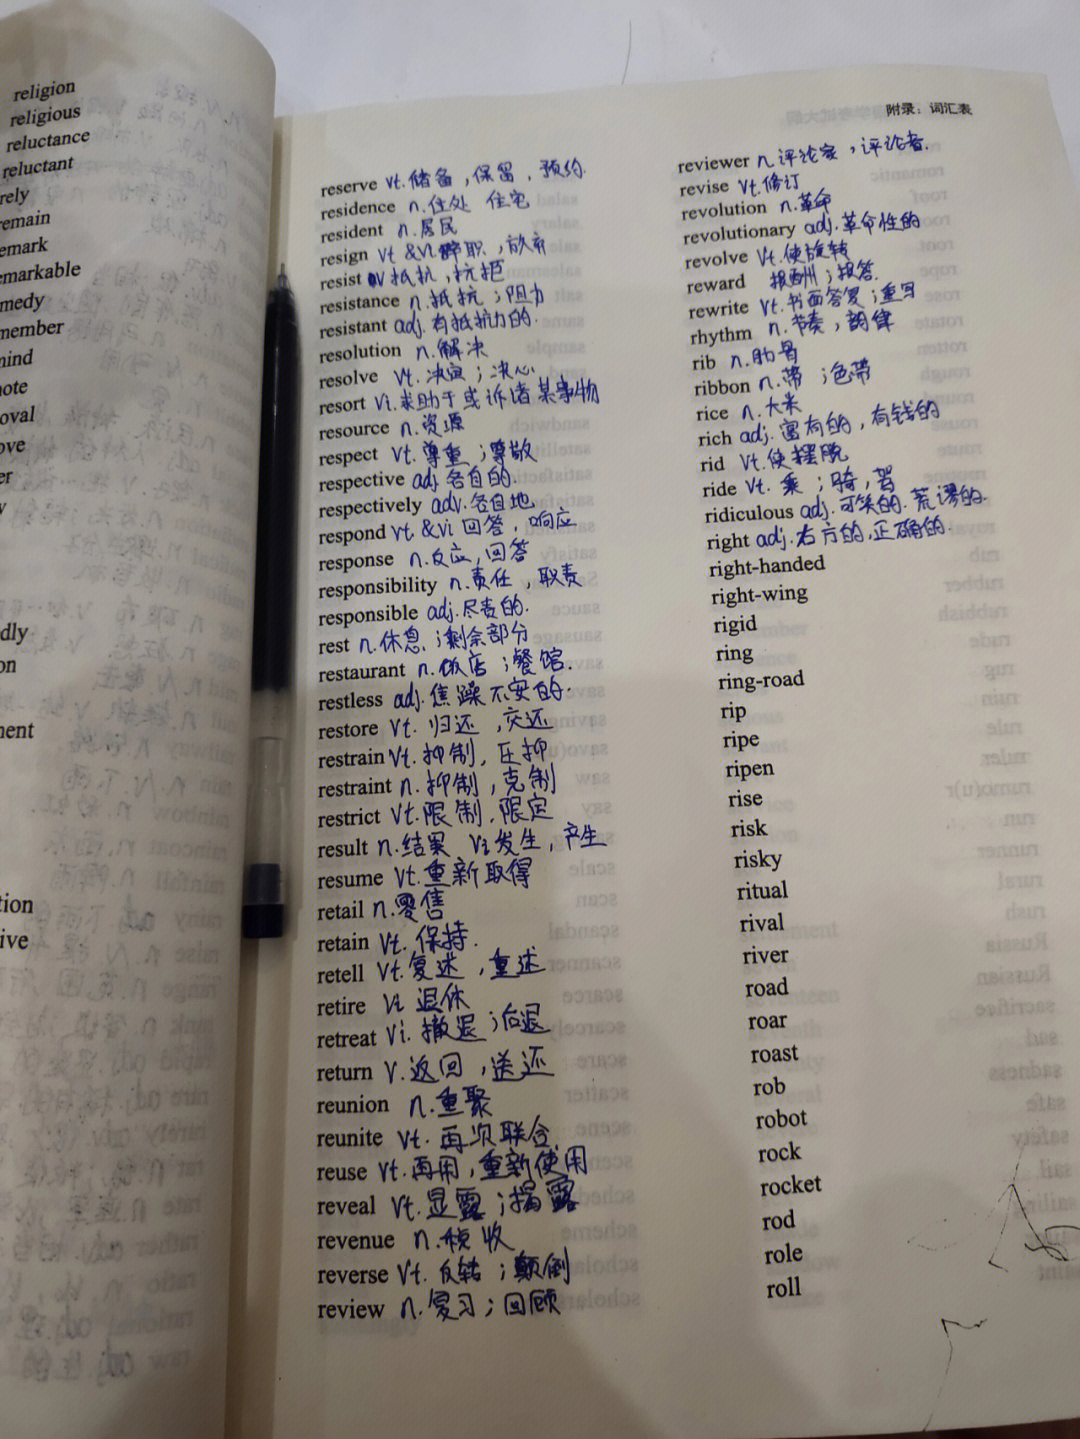 religion
religious
reluctance
reluctant
rely
remain
emark
emarkable
medy
member
mind
note
oval
ove
er
y
dly
on
ment
tion
ive
附录：词汇表
reserve vt.储备，保留，预约.
residence n.住处 住宅
resident n.居民
resign vt &vi 辞职，放弃
resist v 抵抗，抗拒
resistance n.抵抗；阻力
resistant adj.有抵抗力的.
resolution n.解决
resolve vt.决定；决心
resort vi.求助于或诉诸某事物
resource n.资源
respect vt.尊重；尊敬
respective adj 各自的.
respectively adv.各自地
respond vt.&vi 回答，响应
response n.反应，回答
responsibility n.责任，职责
responsible adj.尽责的.
rest n.休息；剩余部分
restaurant n.饭店；餐馆.
restless adj.焦躁不安的.
restore vt.归还，交还
restrain vt.抑制，压抑
restraint n.抑制，克制
restrict vt.限制，限定
result n.结果 vi发生，产生
resume vt.重新取得
retail n.零售
retain vt.保持.
retell vt.复述，重述
retire vi 退休
retreat vi.撤退；后退
return v.返回，送还
reunion n.重聚
reunite vt.再次联合
reuse vt.再用，重新使用
reveal vt.显露；揭露
revenue n.税收
reverse vt.反转；颠倒
review n.复习；回顾
reviewer n.评论家，评论者.
revise vt.修订
revolution n.革命
revolutionary adj.革命性的
revolve vt.使旋转
reward 报酬；报答
rewrite vt.书面答复；重写
rhythm n.节奏，韵律
rib n.肋骨
ribbon n.带；色带
rice n.大米
rich adj.富有的，有钱的
rid vt.使摆脱
ride vt.乘；骑，驾
ridiculous adj.可笑的.荒谬的.
right adj.右方的,正确的.
right-handed
right-wing
rigid
ring
ring-road
rip
ripe
ripen
rise
risk
risky
ritual
rival
river
road
roar
roast
rob
robot
rock
rocket
rod
role
roll